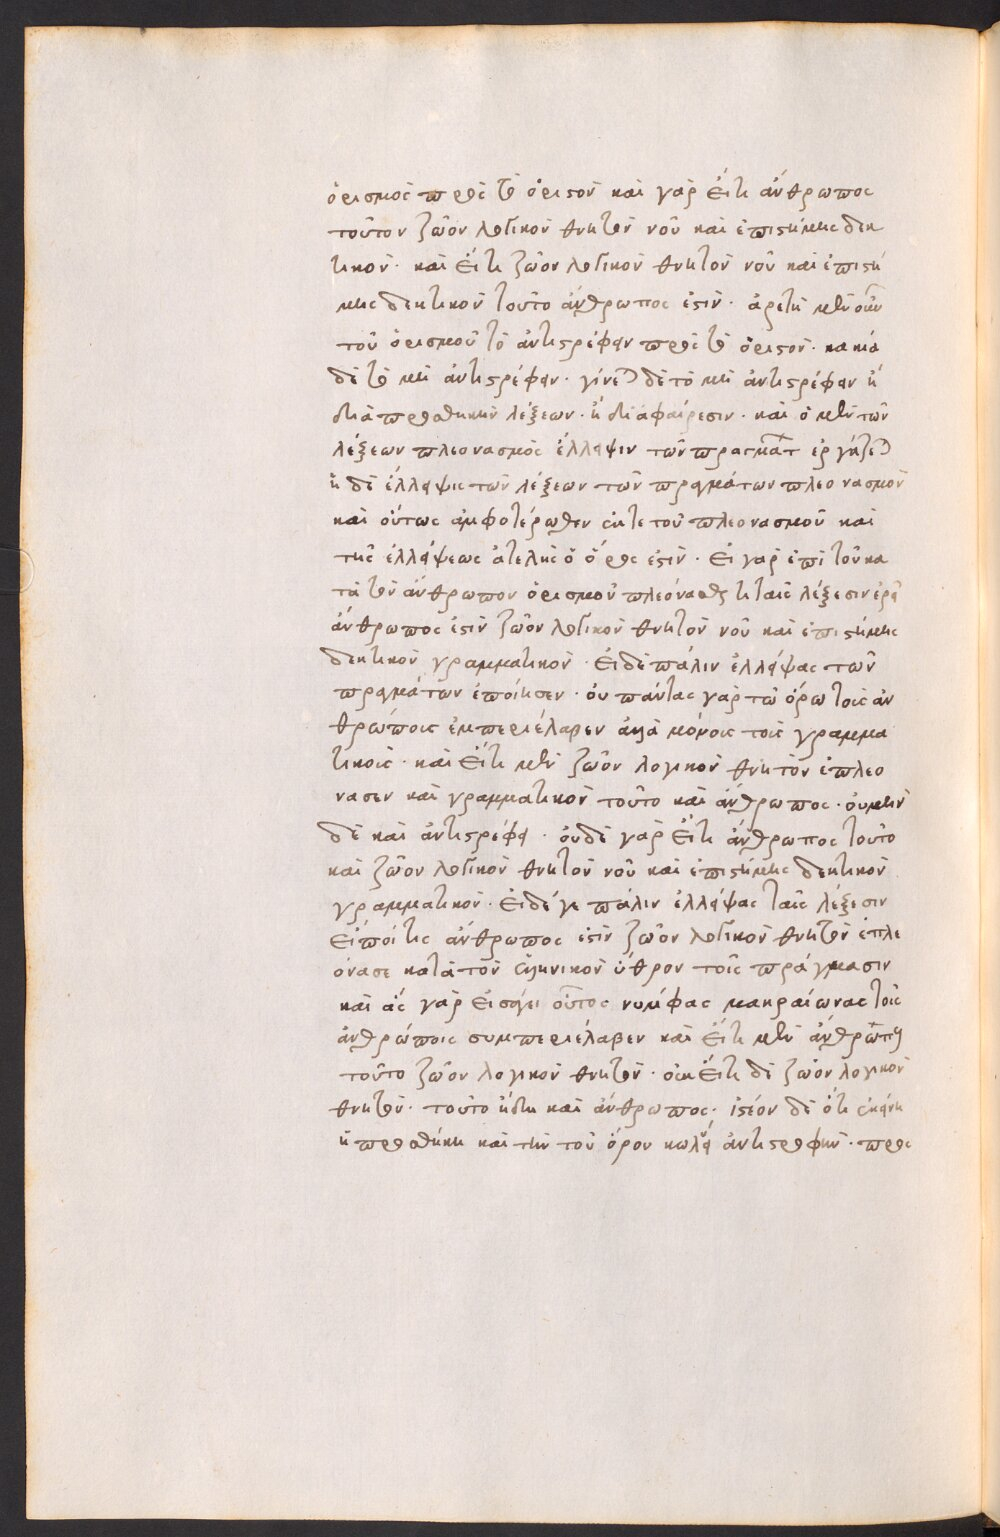 ὁρισμὸς πρὸς τὸ ὁριστὸν καὶ γὰρ εἴ τι ἄνθρωπος
τοῦτον ζῶον λογικὸν θνητὸν νοῦ καὶ ἐπιστήμης δεκ
τικὸν· καὶ εἴ τι ζῶον λογικὸν θνητὸν νοῦ καὶ ἐπιστή
μης δεκτικὸν τοῦτο ἄνθρωπος ἐστὶν· ἀρετὴ μὲν οὖν
τοῦ ὁρισμοῦ τὸ ἀντιστρέφειν πρὸς τὸ ὁριστὸν· κακία
δὲ τὸ μὴ ἀντιστρέφειν· γίνεται δὲ τὸ μὴ ἀντιστρέφειν ἢ
διὰ προσθήκην λέξεων· ἢ δι ἀφαίρεσιν· καὶ ὁ μὲν τῶν
λέξεων πλεονασμὸς ἔλλειψιν τῶν πραγμάτ ἐργάζεται
ἡ δὲ ἔλλειψις τῶν λέξεων τῶν πραγμάτων πλεονασμὸν
καὶ οὕτως ἀμφοτέρωθεν ἔκ τε τοῦ πλεονασμοῦ καὶ
τῆς ἐλλείψεως ἀτελὴς ὁ ὅρος ἐστὶν· εἰ γὰρ ἐπὶ τοῦ κα
τὰ τὸν ἄνθρωπον ὁρισμοῦ πλεονάσας τι ταῖς λέξεσιν ἐρεῖ
ἄνθρωπος ἐστὶν ζῶον λογικὸν θνητὸν νοῦ καὶ ἐπιστήμης
δεκτικὸν γραμματικὸν· εἰ δὲ πάλιν ἐλλείψας τῶν
πραγμάτων ἐποίησεν· οὐ πάντας γὰρ τῶ ὅρω τοὺς ἀν
θρώποις ἐμπεριέλαβεν ἀλλὰ μόνοις τοῖς γραμμα
τικοῖς· καὶ εἴ τι μὲν ζῶον λογικὸν θνητὸν ἐπλεο
νασεν καὶ γραμματικὸν τοῦτο καὶ ἄνθρωπος· οὐ μὴν
δὲ καὶ ἀντιστρέφει· οὐδὲ γὰρ εἴ τι ἄνθρωπος τοῦτο
καὶ ζῶον λογικὸν θνητὸν νοῦ καὶ ἐπιστήμης δεκτικὸν
γραμματικὸν· εἰ δέ γε πάλιν ἐλλείψας ταῖς λέξεσιν
εἴποι τις ἄνθρωπος ἐστὶν ζῶον λογικὸν θνητὸν ἐπλε
όνασε κατὰ τὸν ἑλληνικὸν ὕθρον τοῖς πράγμασιν
καὶ ἃς γὰρ εἰσάγει οὗτος νυμφας μακραίωνας τοῖς
ἀνθρώποις συμπεριέλαβεν καὶ εἴ τι μὲν ἄνθρωπος
τοῦτο ζῶον λογικὸν θνητὸν· οὐκ εἴ τι δὲ ζῶον λογικὸν
θνητὸν· τοῦτο ἤδη καὶ ἄνθρωπος· ἰστέον δὲ ὅτι ἐκείνη
ἡ προσθήκη καὶ τὴν τοῦ ὅρον κωλύει ἀντιστροφὴν· προς